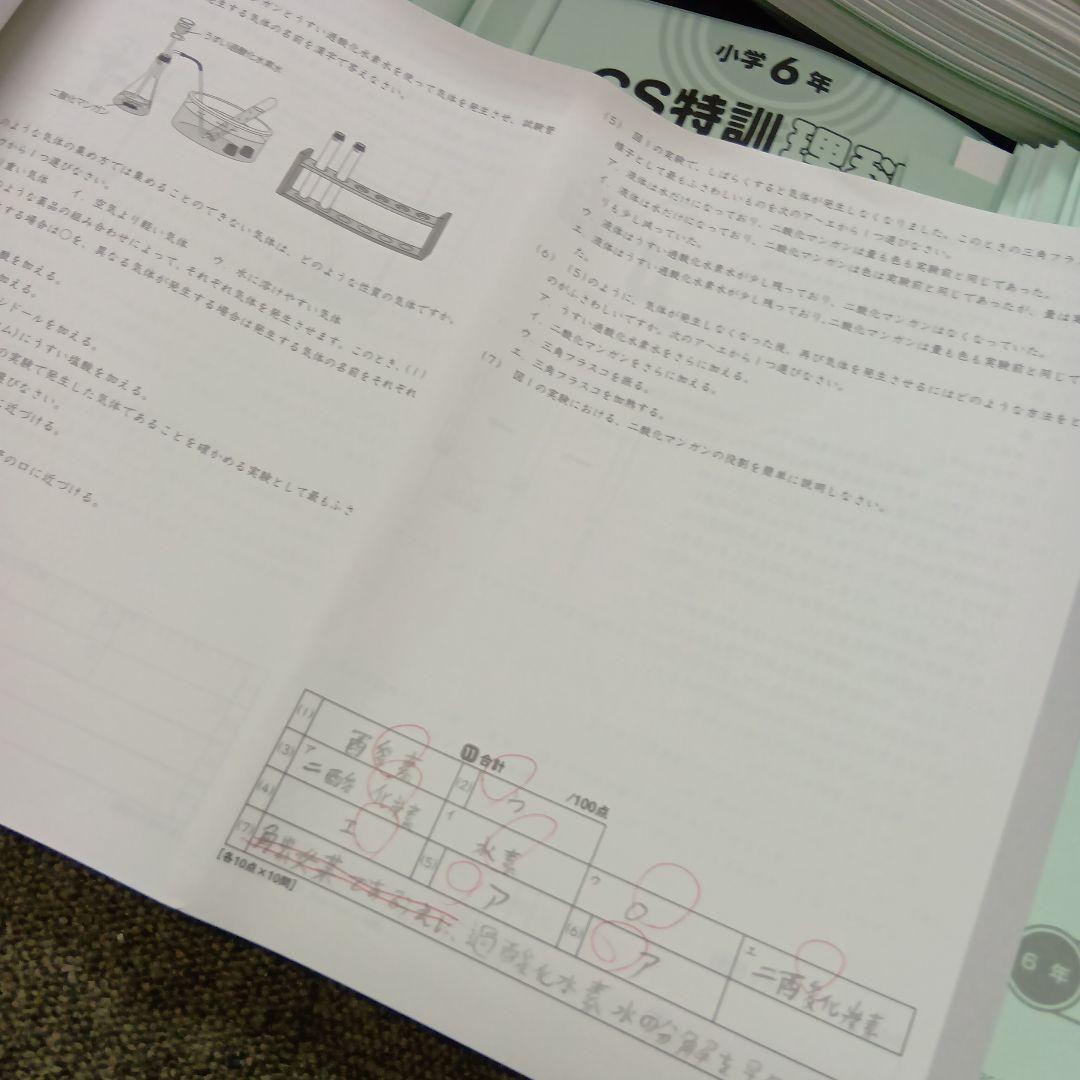 小学6年
特訓 理科
ンガンとうすい過酸化水素水を使って気体を発生させ、試験管
発生する気体の名前を漢字で答えなさい。
うすい過酸化水素水
二酸化マンガン
のような気体の集め方では集めることのできない気体は、どのような性質の気体ですか。
から1つ選びなさい。
重い気体 イ. 空気より軽い気体 ウ. 水に溶けやすい気体
のような薬品の組み合わせによって、それぞれ気体を発生させます。このとき、(1)
する場合は○を、異なる気体が発生する場合は発生する気体の名前をそれぞれ
酸を加える。
加える。
ンドールを加える。
ム)にうすい塩酸を加える。
の実験で発生した気体であることを確かめる実験として最もふさ
選びなさい。
に近づける。
の口に近づける。
(5) 図1の実験で、しばらくすると気体が発生しなくなりました。このときの三角フラス
様子として最もふさわしいものを次のア~エから1つ選びなさい。
ア. 液体は水だけになっており、二酸化マンガンは量も色も実験前と同じであった。
イ. 液体は水だけになっており、二酸化マンガンは色は実験前と同じであったが、量は実
りも少し減っていた。
ウ. 液体はうすい過酸化水素水が少し残っており、二酸化マンガンはなくなっていた。
エ. 液体はうすい過酸化水素水が少し残っており、二酸化マンガンは量も色も実験前と同じで
た。
(6) (5)のように、気体が発生しなくなった後、再び気体を発生させるにはどのような方法をと
のがふさわしいですか。次のア~エから1つ選びなさい。
ア. うすい過酸化水素水をさらに加える。
イ. 二酸化マンガンをさらに加える。
ウ. 三角フラスコを振る。
エ. 三角フラスコを加熱する。
(7) 図1の実験における、二酸化マンガンの役割を簡単に説明しなさい。
11 合計 /100点
(1) 酸素 (2) ウ
(3) ア 二酸化炭素 イ 水素 ウ ○ エ 二酸化炭素
(4) エ (5) ア (6) ア
(7) 過酸化水素水の分解を早
[各10点×10問]
6年